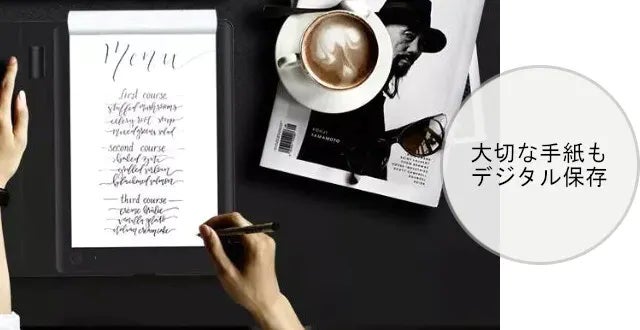 Menu
first course
stuffed mushrooms
celery root soup
mixed greens salad
second course
baked ziti
grilled salmon
third course
creme brulee
vanilla gelato
YOHJI
YAMAMOTO
大切な手紙も
デジタル保存